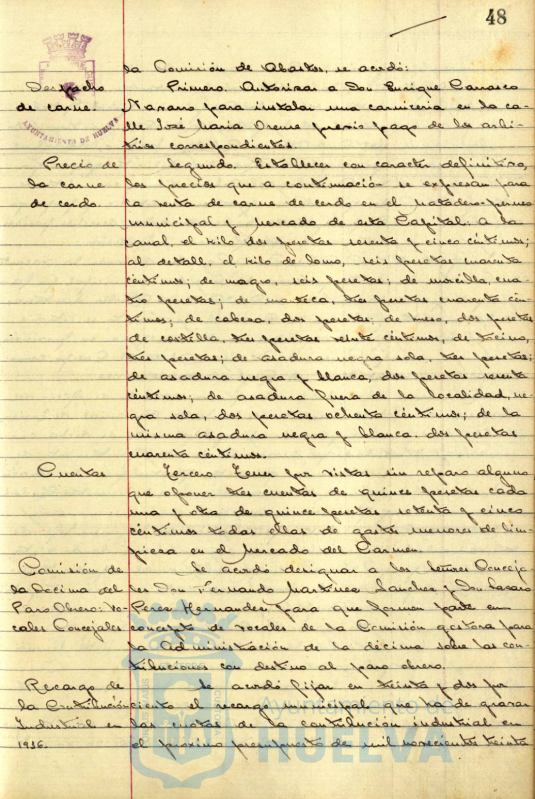 48
la Comisión de Abastos, se acordó:
Despacho de carne.
Primero. Autorizar a Don Enrique Carrasco
Navarro para instalar una carnicería en la ca-
lle José María Orense previo pago de los arbi-
trios correspondientes.
AYUNTAMIENTO DE HUELVA
Precio de la carne de cerdo.
Segundo. Establecer con caracter definitivo,
los precios que a continuación se expresan para
la venta de carne de cerdo en el Matadero
municipal y Mercado de esta Capital: a la
canal, el kilo dos pesetas sesenta y cinco céntimos;
al detall, el kilo de lomo, seis pesetas cuarenta
céntimos; de magro, seis pesetas; de morcilla, cua-
tro pesetas; de manteca, tres pesetas cuarenta cén-
timos; de cabeza, dos pesetas; de hueso, dos pesetas
de costilla, tres pesetas veinte céntimos, de tocino,
tres pesetas; de asadura negra sola, tres pesetas;
de asadura negra y blanca, dos pesetas sesenta
céntimos; de asadura fuera de la localidad, ne-
gra sola, dos pesetas ochenta céntimos; de la
misma asadura negra y blanca. dos pesetas
cuarenta céntimos.
Cuentas
Tercero Tener por vistas sin reparo alguno
que oponer tres cuentas de quince pesetas cada
una y otra de quince pesetas setenta y cinco
céntimos todas ellas de gastos menores de lim-
pieza en el Mercado del Carmen.
Comisión de la Décima del Paro Obrero: Vo-
cales Concejales
Se acordó designar a los Señores Conceja-
les Don Fernando Martínez Sanchez y Don
Perez Hernandez para que formen parte en
concepto de vocales de la Comisión gestora para
la Administración de la décima sobre las con-
tribuciones con destino al paro obrero.
Recargo de la Contribución Industrial en 1936.
Se acordó fijar en treinta y dos por
ciento el recargo municipal que ha de gravar
las cuotas de la contribución industrial en
el próximo presupuesto de mil novecientos treinta
Ayuntamiento de
HUELVA